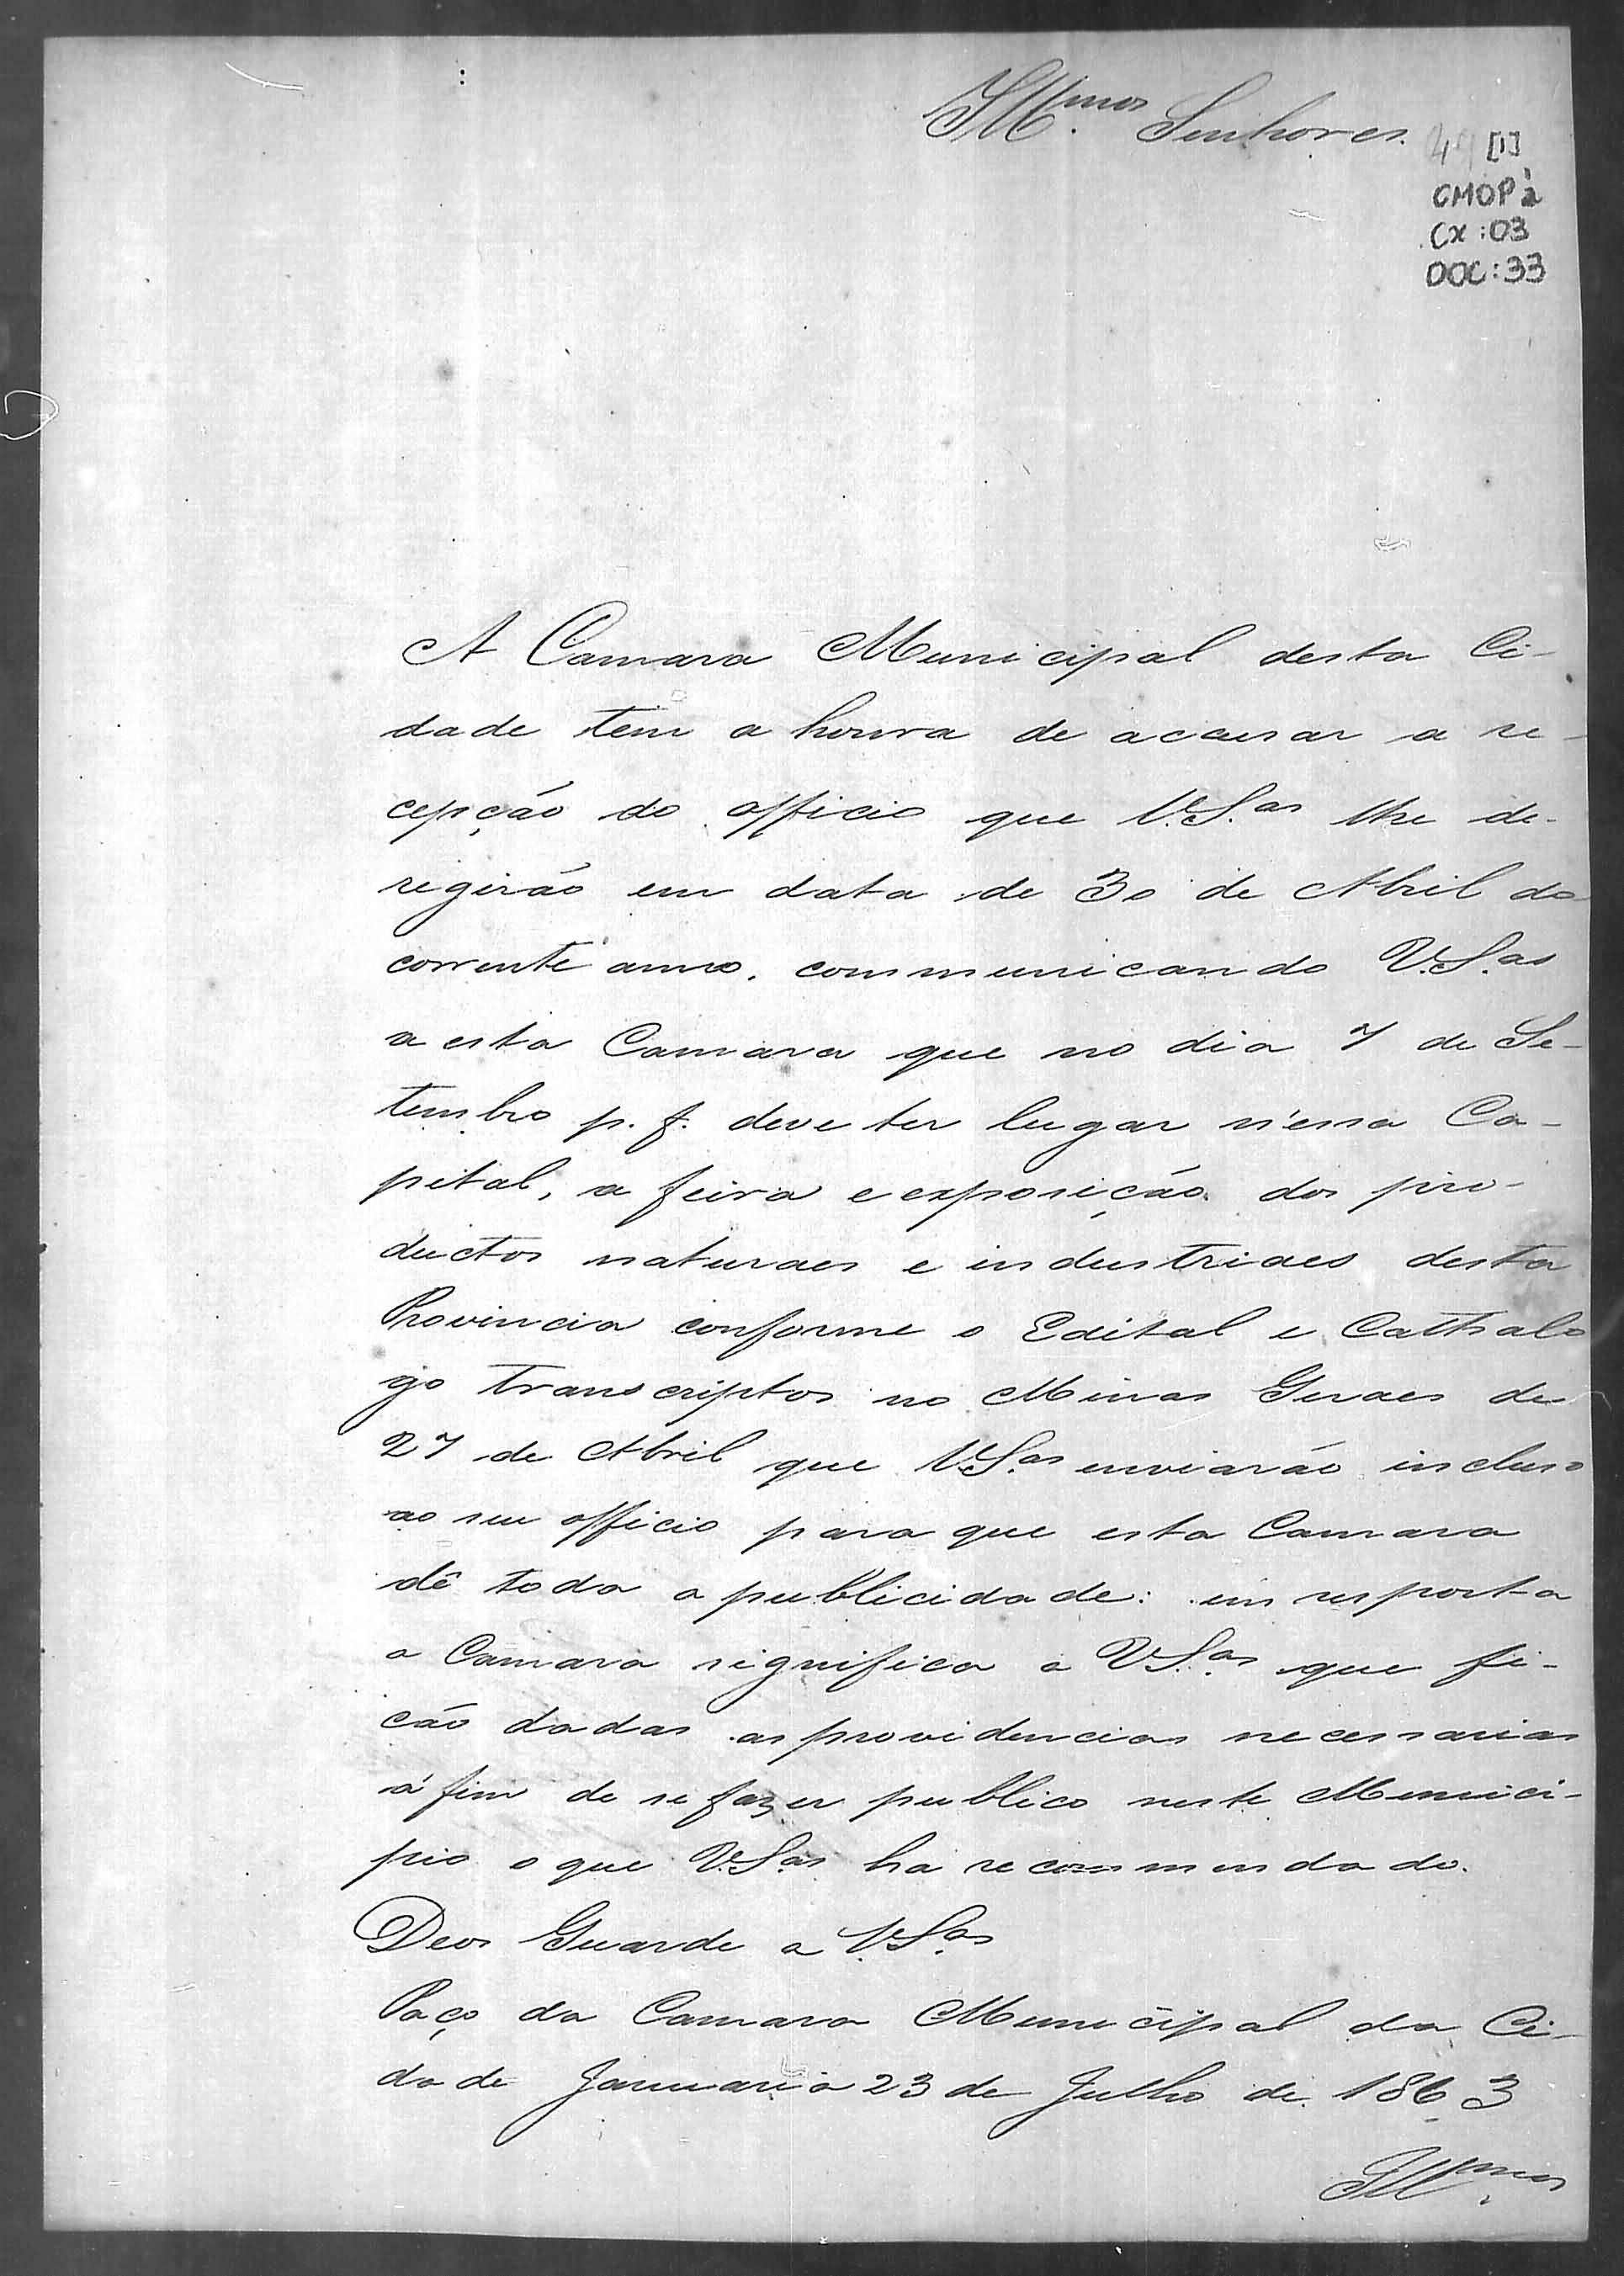 Illmos. Senhores.
49 [1]
CMOP 2
CX:03
DOC:33
A Camara Municipal desta Ci-
dade tem a honra de accusar a re-
cepção do officio que V.S.as lhe de-
regirão em data de 30 de Abril do
corrente anno, communicando V.S.as
a esta Camara que no dia 7 de Se-
tembro p. f. deve ter lugar n'essa Ca-
pital, a feira e exposição dos pro-
ductos naturaes e industriaes desta
Provincia conforme o Edital e Cathalo
go transcriptos no Minas Geraes de
27 de Abril que V.S.as enviarão incluso
ao seu officio para que esta Camara
dê toda a publicidade: em resposta
a Camara significa a V.S.as que fi-
cão dadas as providencias necessarias
á fim de se fazer publico neste Munici-
pio o que V.S.as ha recommendado.
Deos Guarde a V.S.as
Paço da Camara Municipal da Ci-
dade Januaria 23 de Julho de 1863
Illmos.